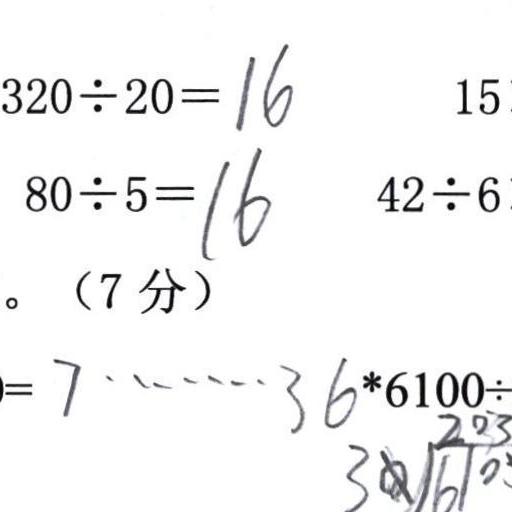 320÷20=16 15
80÷5=16 42÷6
。（7分）
= 7……36 *6100÷
203